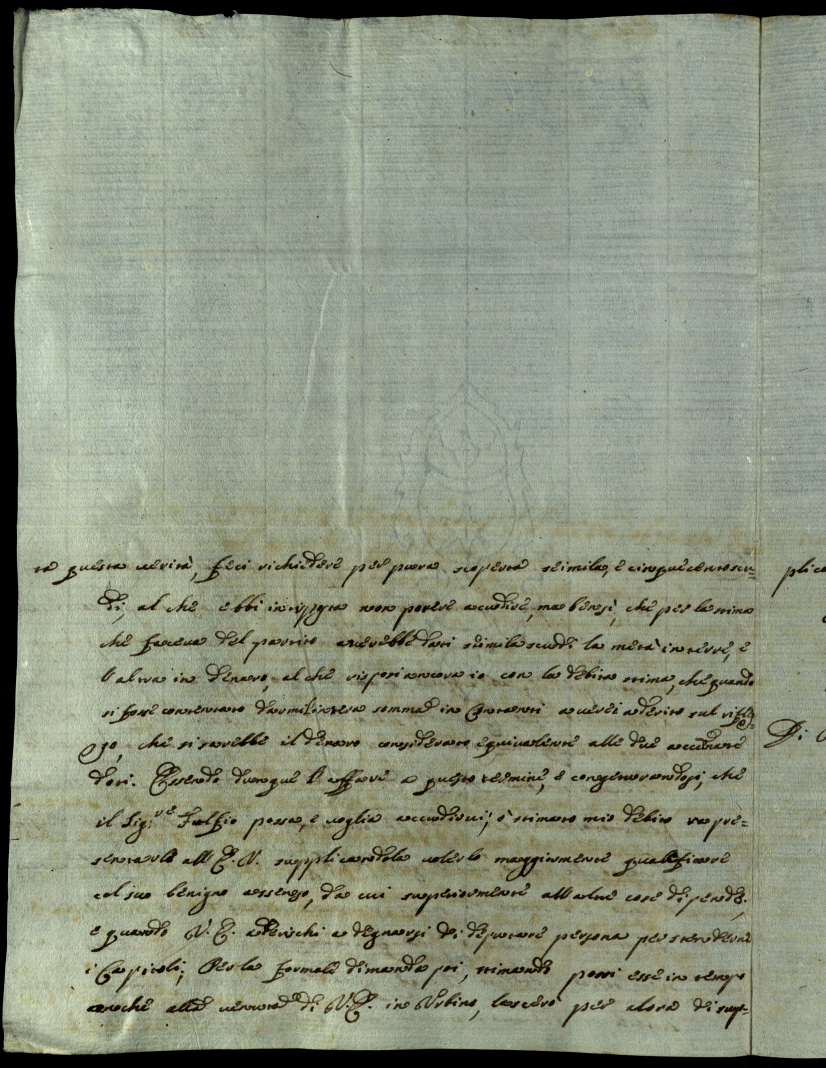 ta questa verità, feci richiedere per pura scoperta seimila, e cinquecento scu-
di, al che ebbi in risposta non potere accudire, ma bensì, che per la stima
che faceva del partito averebbe dati seimila scudi la metà in terre, e
l'altra in denaro, al che risposi ancora io con la debita stima, che quando
si fosse contentato darmi l'intera somma in contanti averei aderito sul
che si sarebbe il denaro considerato equivalente alle due accennate
doti. Essendo dunque l'affare a questo termine, e congetturandosi, che
il Sig.re Fulfio possa, e voglia accudirci, ò stimato mio debito rapre-
sentarlo all'E.V. supplicandola volerlo maggiormente qualificare
col suo benigno assenso, da cui superiormente all'altre cose dipende,
e quando V.E. aderischi a degnarsi di deputare persona per stenderne
i Capitoli; Per la formale dimanda poi, stimando possi esse in tempo
anche alla venuta di V.E. in Urbino, lascerò per alora di sup-
plica
Di